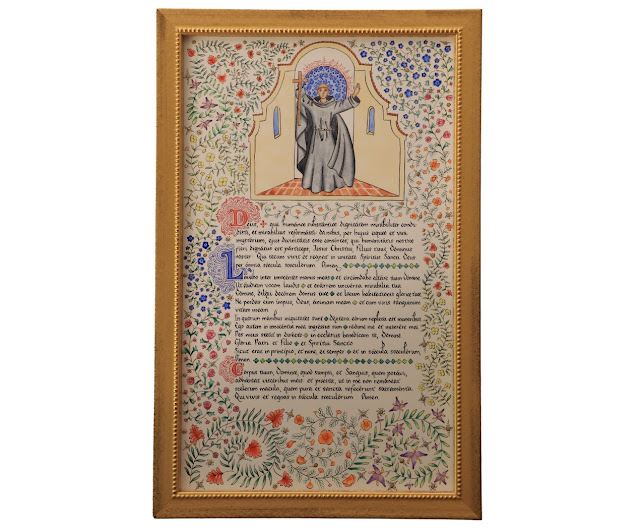 Deus, ✠ qui humanæ substantiæ dignitatem mirabiliter condi-
disti, et mirabilius reformasti: da nobis, per hujus aquæ et vini
mysterium, ejus divinitatis esse consortes, qui humanitatis nostræ
fieri dignatus est particeps, Jesus Christus Filius tuus, Dominus
noster: Qui tecum vivit et regnat in unitate Spiritus Sancti Deus
per omnia sæcula sæculorum. Amen.
Lavabo inter innocentes manus meas et circumdabo altare tuum Domine
Ut audiam vocem laudis et enarrem universa mirabilia tua
Domine, dilexi decorem domus tuæ et locum habitationis gloriæ tuæ
Ne perdas cum impiis, Deus, animam meam et cum viris sanguinum
vitam meam:
In quorum manibus iniquitates sunt dextera eorum repleta est muneribus
Ego autem in innocentia mea ingressus sum redime me et miserere mei
Pes meus stetit in directo in ecclesiis benedicam te, Domine
Gloria Patri et Filio et Spiritui Sancto
Sicut erat in principio, et nunc, et semper et in sæcula sæculorum
Amen
Corpus tuum, Domine, quod sumpsi, et Sanguis, quem potavi,
adhæreat visceribus meis et præsta, ut in me non remaneat
scelerum macula, quem pura et sancta refecerunt sacramenta.
Qui vivis et regnas in sæcula sæculorum Amen.